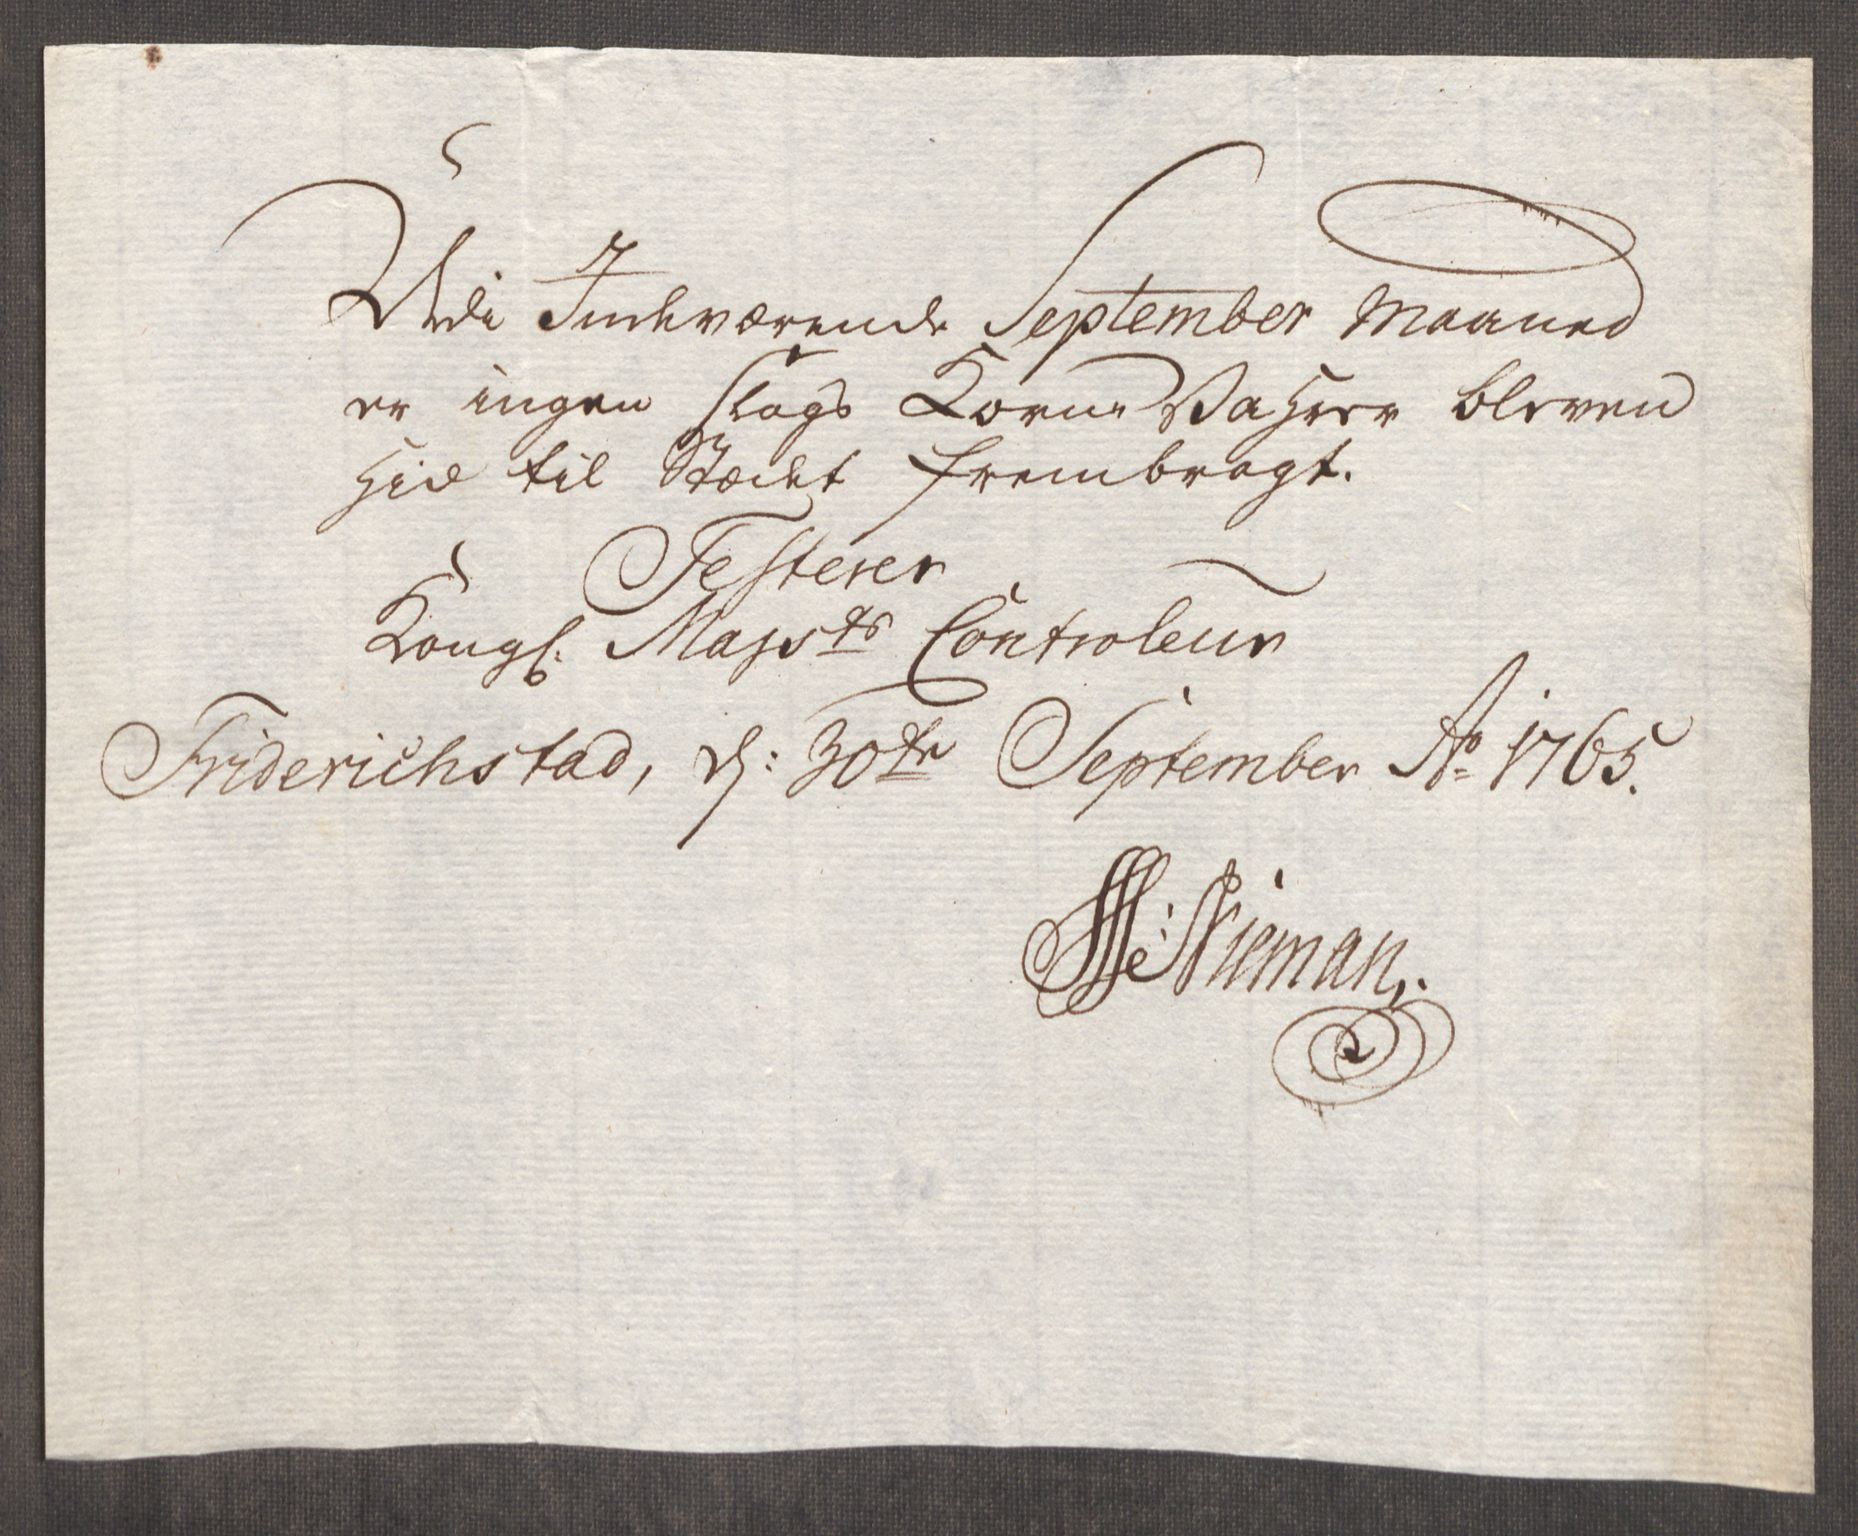 Udi Indeværende September Maaned
er ingen slags Korne Vahrer bleven
hid til Stædet frembragt.
Testerer
Kongl. Mayts Controleur
Friderichstad, d: 30te September Ao 1765.
Nieman